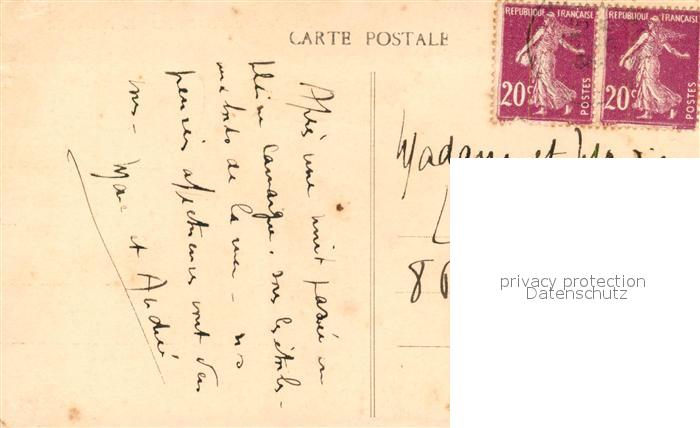 CARTE POSTALE
REPUBLIQUE FRANÇAISE
20c
POSTES
REPUBLIQUE FRANÇAISE
20c
POSTES
Après une nuit passée en
pleine Camargue, sous les étoiles -
de la mer - nos
pensées affectueuses vont vers
vous - et André
Madame et
86
privacy protection
Datenschutz